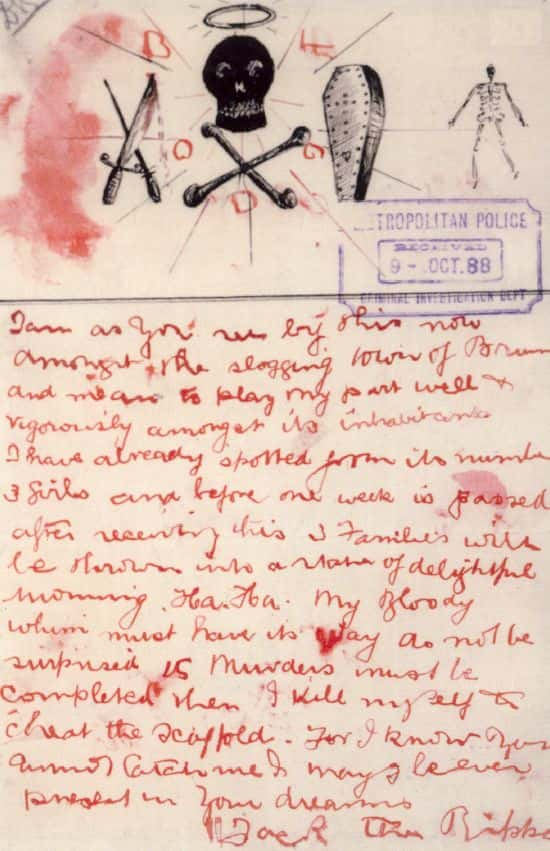 B F
O G
D
METROPOLITAN POLICE
RECEIVED
9 - OCT.88
CRIMINAL INVESTIGATION DEPT
I am as you see by this now
amongst the slogging town of Brum
and mean to play my part well &
vigorously amongst its inhabitants
I have already spotted from its number
3 Girls and before one week is passed
after receiving this 3 Families will
be thrown into a state of delightful
mourning. Ha. Ha. My Bloody
whim must have its way do not be
surprised 15 Murders must be
completed then I kill myself to
cheat the scaffold. For I know you
cannot catch me & may I be ever
present in your dreams
Jack the Ripper